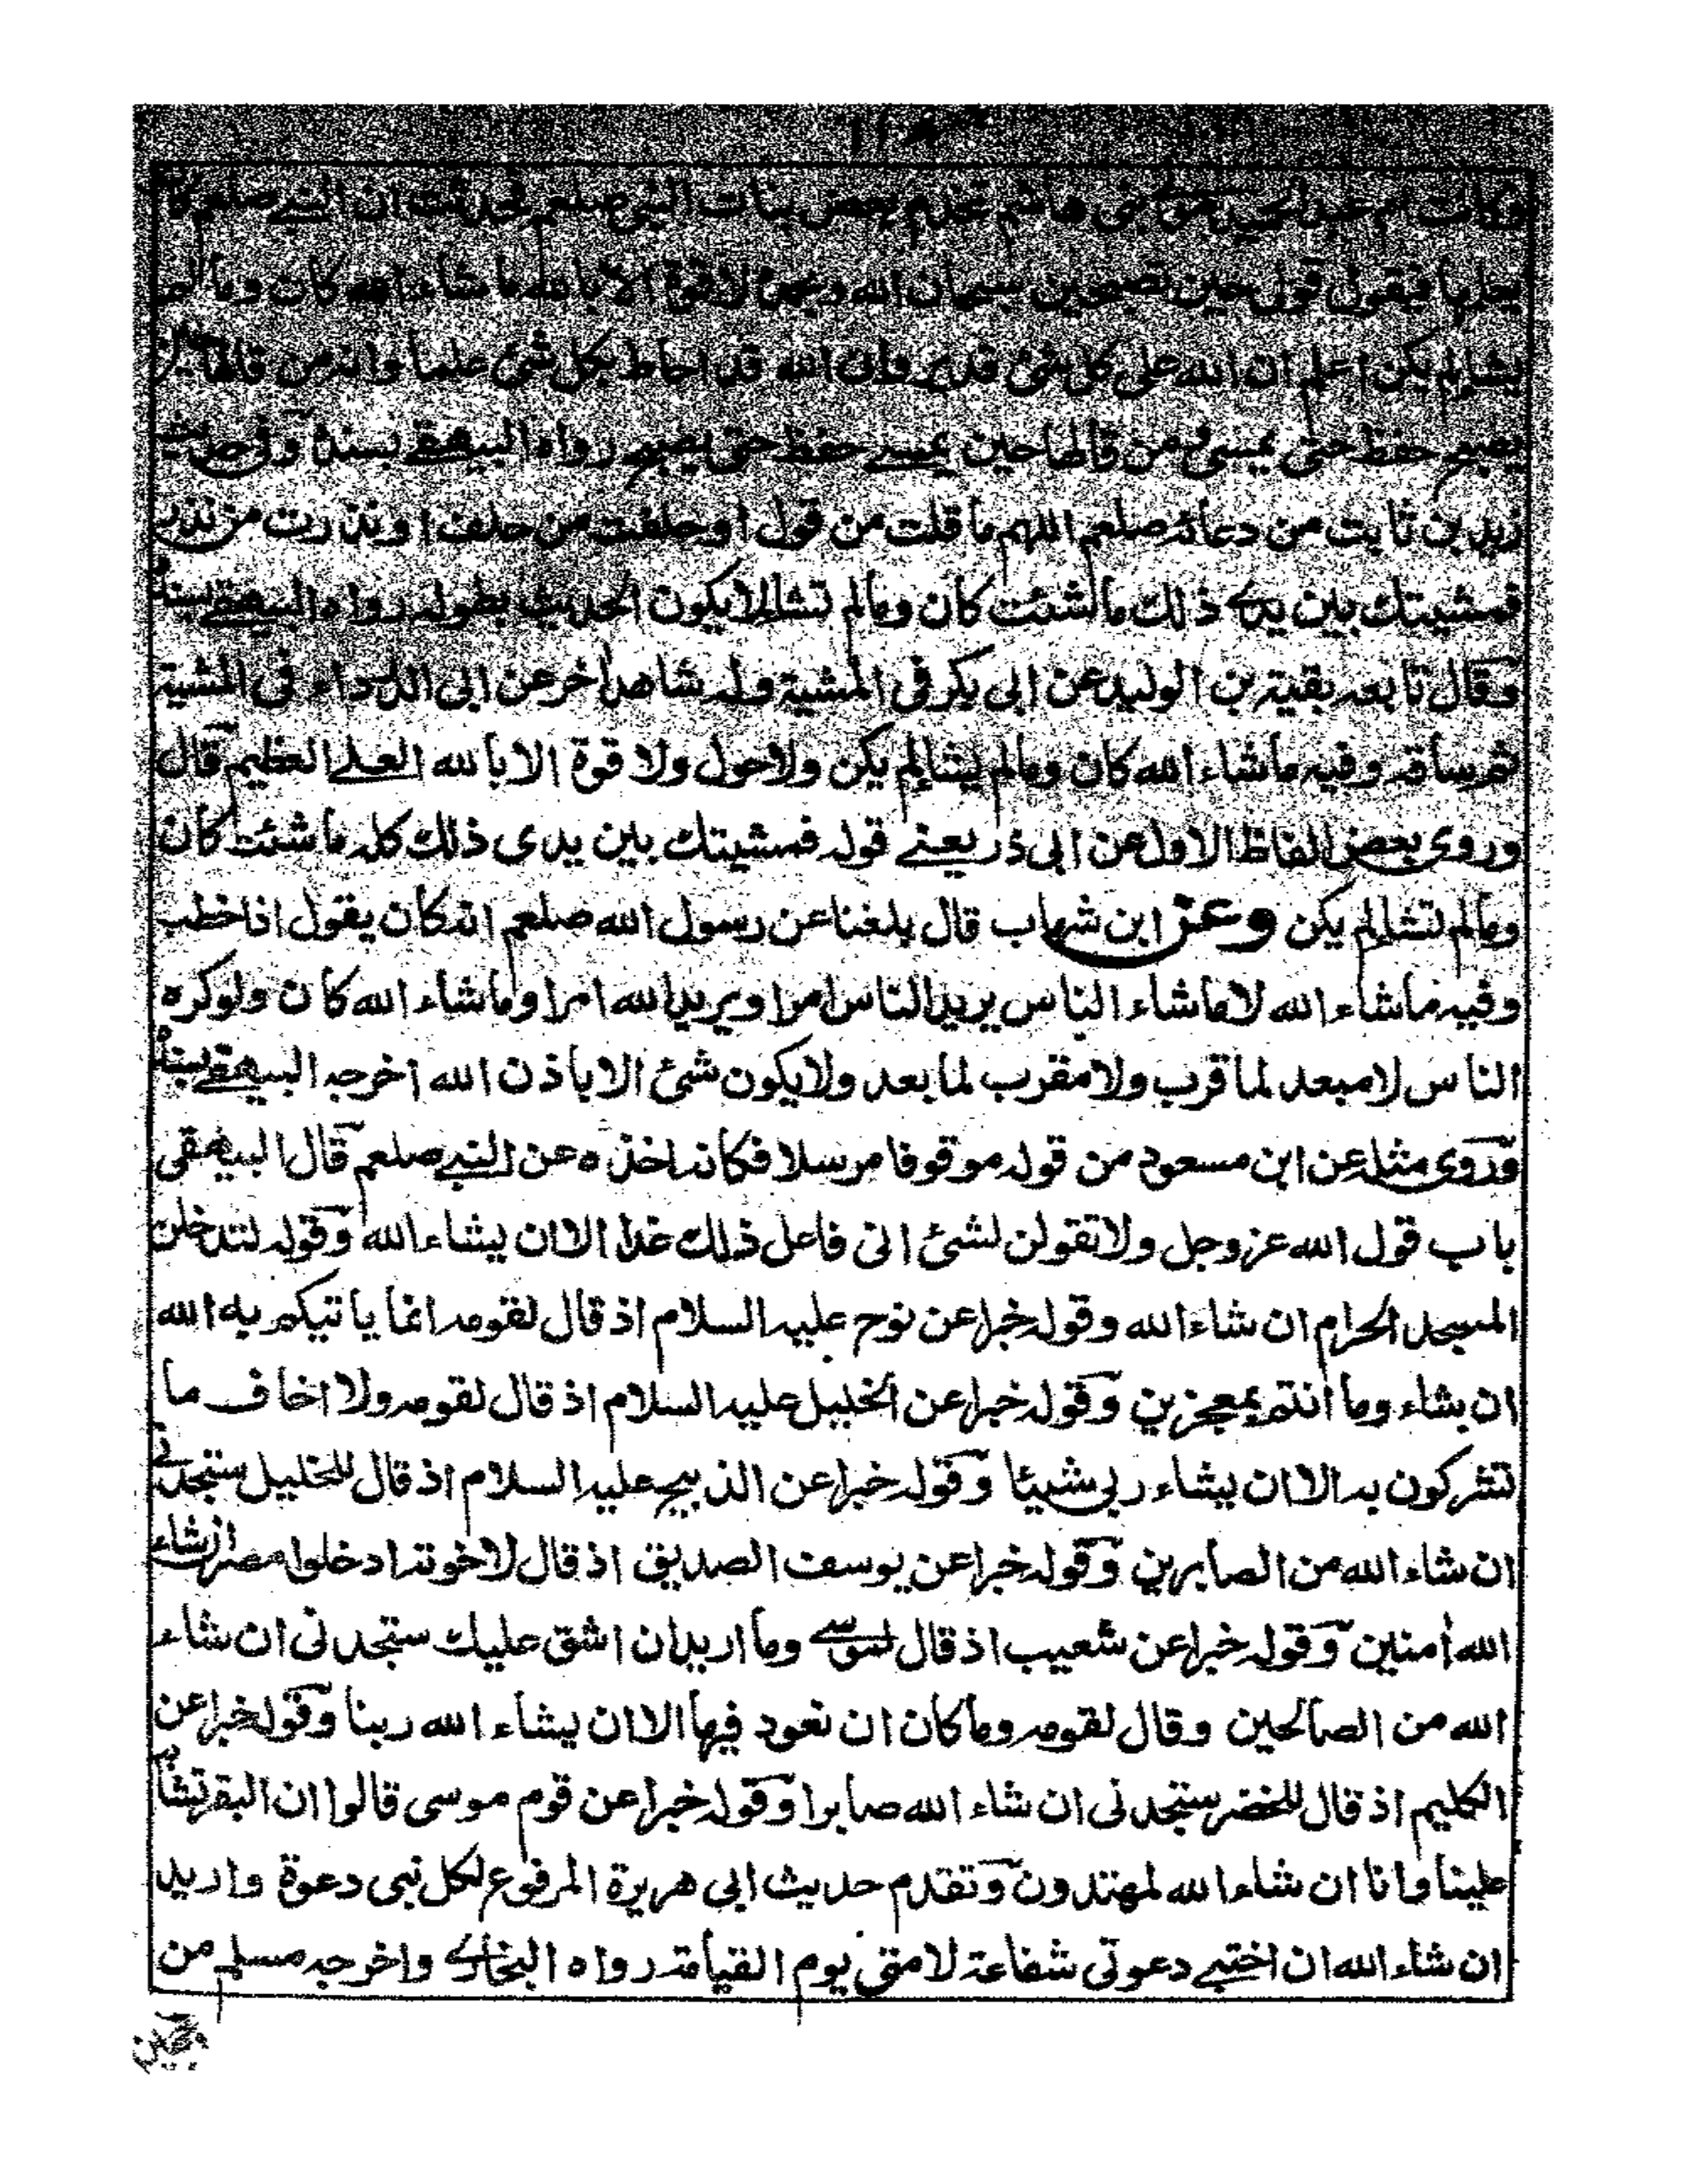 وكانت ام عبد الحميد مولى بنى هاشم تخدم بعض بنات النبى صلعم تحدثت ان النبي صلعم كان
يعلمها فيقول قولى حين تصبحين سبحان الله وبحمده لا قوة الا بالله ما شاء الله كان وما لم
يشا لم يكن اعلم ان الله على كل شئ قدير وان الله قد احاط بكل شئ علما وانه من قالها حين
يصبح حفظ حتى يمسى ومن قالها حين يمسے حفظ حتى يصبح رواه البيهقے بسنده وفى حديث
زيد بن ثابت من دعائه صلعم اللهم ما قلت من قول او حلفت من حلف او نذرت من نذر
فمشيتك بين يدے ذلك ما شئت كان وما لم تشا لا يكون الحديث بطوله رواه البيهقے بسنده
وقال تابعه بقية بن الوليد عن ابى بكر فى المشية وله شاهد اخر عن ابى الدرداء فى المشية
ثم ساقه وفيه ما شاء الله كان وما لم يشا لم يكن ولا حول ولا قوة الا بالله العلے العظيم قال
وروى بعض الفاظ الاول عن ابى ذر يعنے قوله فمشيتك بين يدى ذلك كله ما شئت كان
وما لم تشا لم يكن وعن ابن شهاب قال بلغنا عن رسول الله صلعم انه كان يقول اذا خطب
وفيه ما شاء الله لا ما شاء الناس يريد الناس امرا ويريد الله امرا وما شاء الله كان ولو كره
الناس لا مبعد لما قرب ولا مقرب لما بعد ولا يكون شئ الا باذن الله اخرجه البيهقے بسنده
وروى مثله عن ابن مسعود من قوله موقوفا مرسلا فكانه اخذه عن النبے صلعم قال البيهقى
باب قول الله عز وجل ولا تقولن لشئ انى فاعل ذلك غدا الا ان يشاء الله وقوله لتدخلن
المسجد الحرام ان شاء الله وقوله خبرا عن نوح عليه السلام اذ قال لقومه انما ياتيكم به الله
ان يشاء وما انتم بمعجزين وقوله خبرا عن الخليل عليه السلام اذ قال لقومه ولا اخاف ما
تشركون به الا ان يشاء ربى شيئا وقوله خبرا عن الذبيح عليه السلام اذ قال للخليل ستجدنے
ان شاء الله من الصابرين وقوله خبرا عن يوسف الصديق اذ قال لاخوته ادخلوا مصر ان شاء
الله آمنين وقوله خبرا عن شعيب اذ قال لموسے وما اريد ان اشق عليك ستجدنى ان شاء
الله من الصالحين وقال لقومه وما كان ان نعود فيها الا ان يشاء الله ربنا وقوله خبرا عن
الكليم اذ قال للخضر ستجدنى ان شاء الله صابرا وقوله خبرا عن قوم موسى قالوا ان البقر تشابه
علينا وانا ان شاء الله لمهتدون وتقدم حديث ابى هريرة المرفوع لكل نبى دعوة واريد
ان شاء الله ان اختبے دعوتى شفاعة لامتى يوم القيامة رواه البخارے واخرجه مسلم من